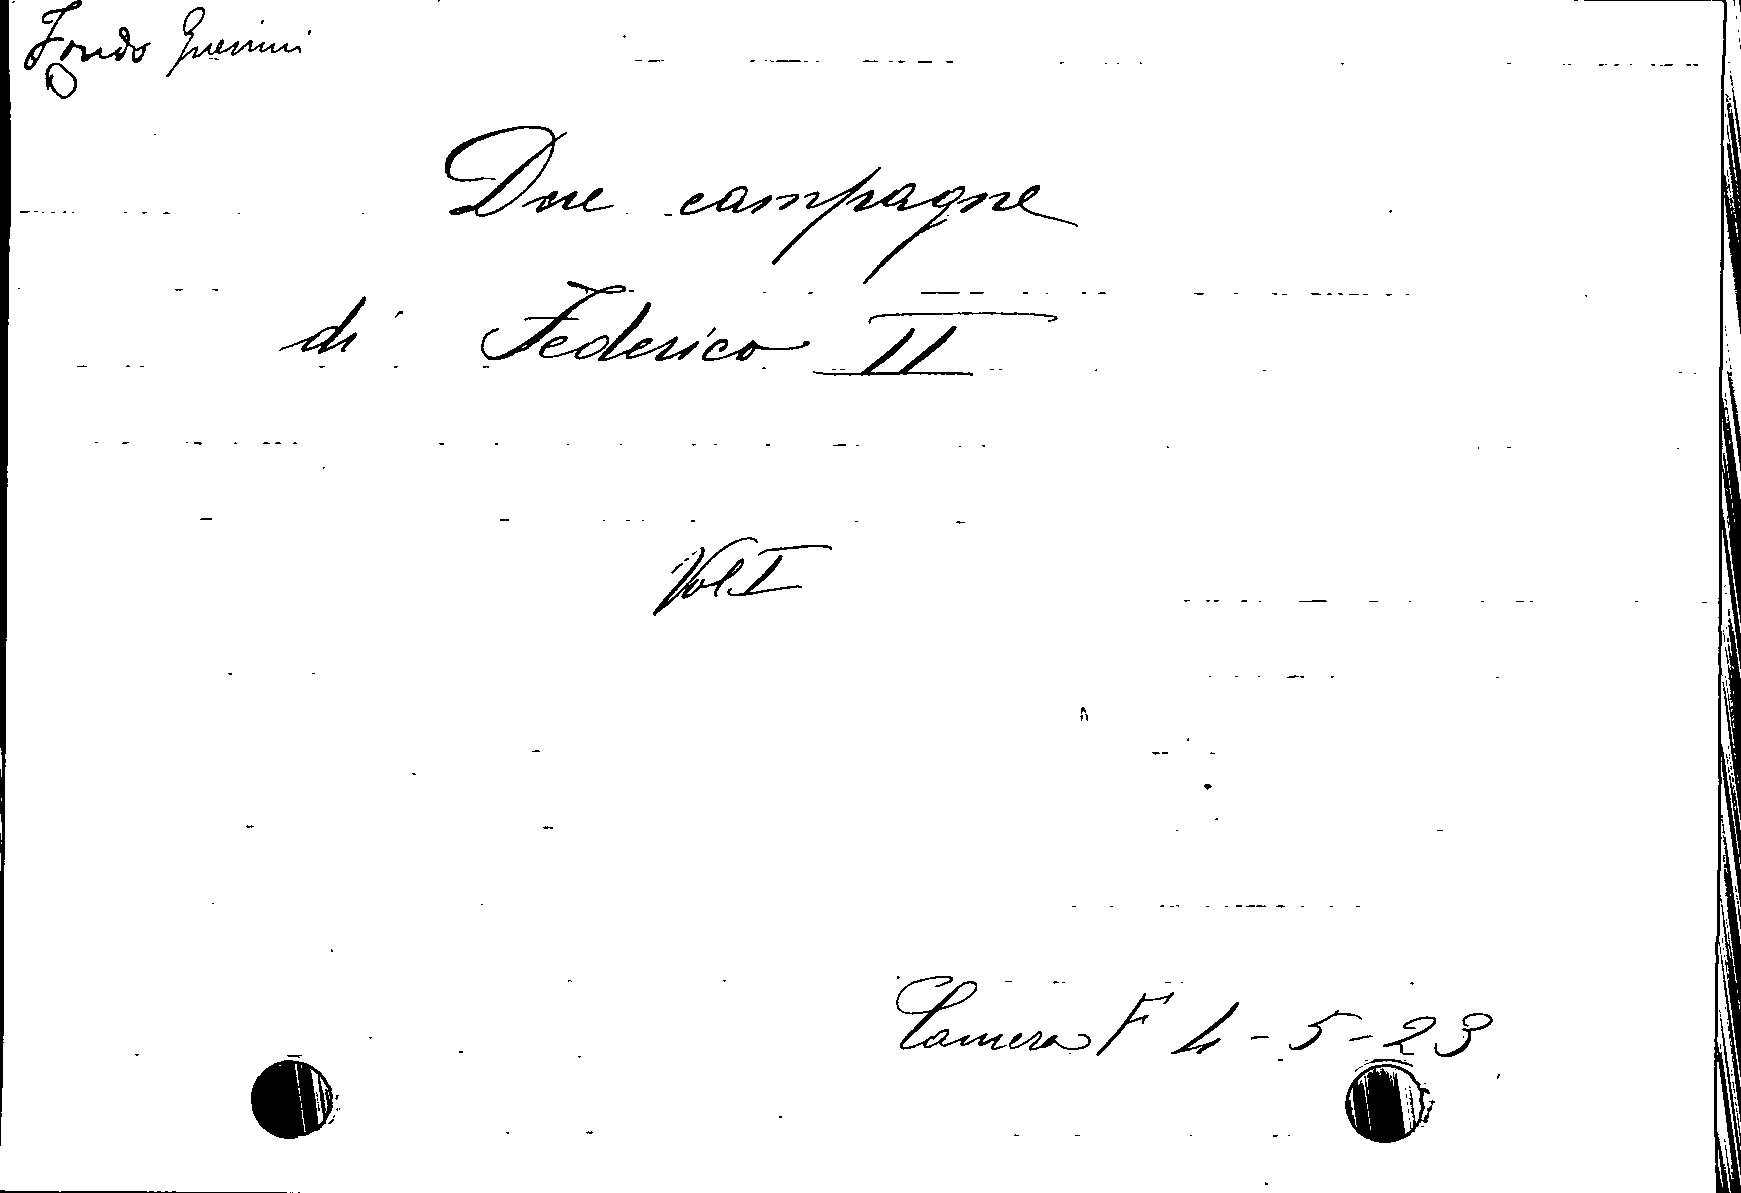 Fondo Guerrini
Due campagne
di Federico II
Vol I
Camera F 4-5-23